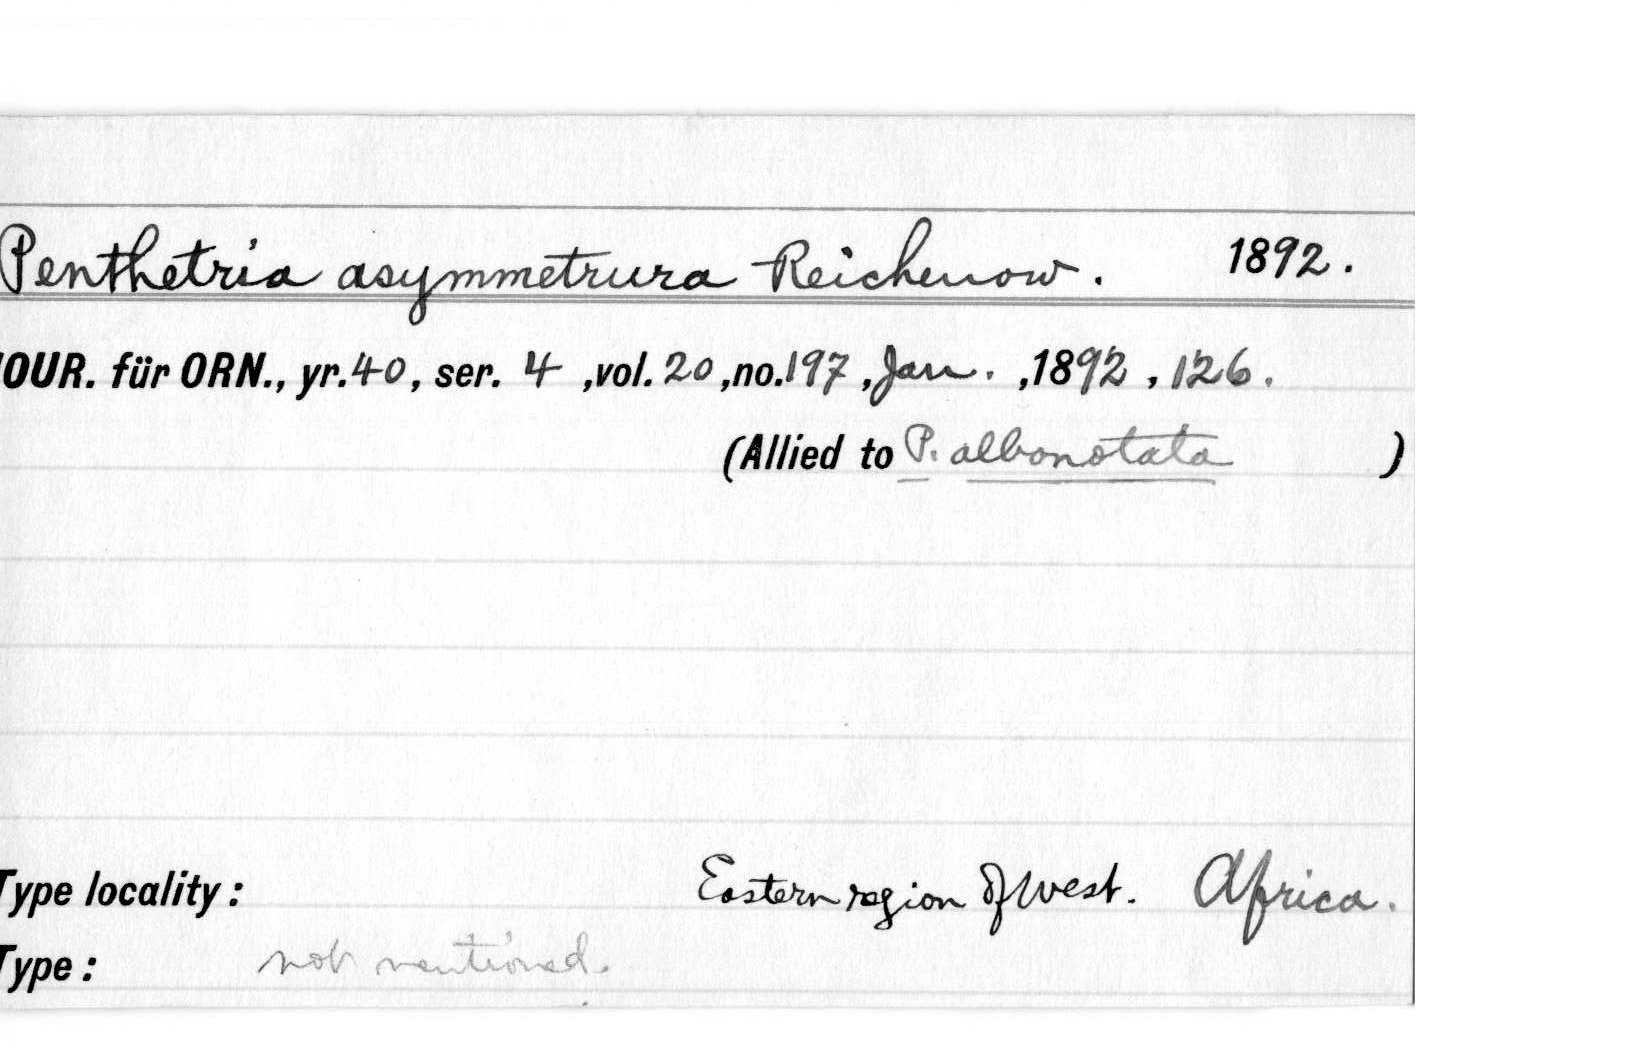 Penthetria asymmetrura Reichenow. 1892.
JOUR. für ORN., yr. 40, ser. 4, vol. 20, no. 197, Jan., 1892, 126.
(Allied to P. albonotata)
Type locality: Eastern region of West. Africa.
Type: not mentioned.